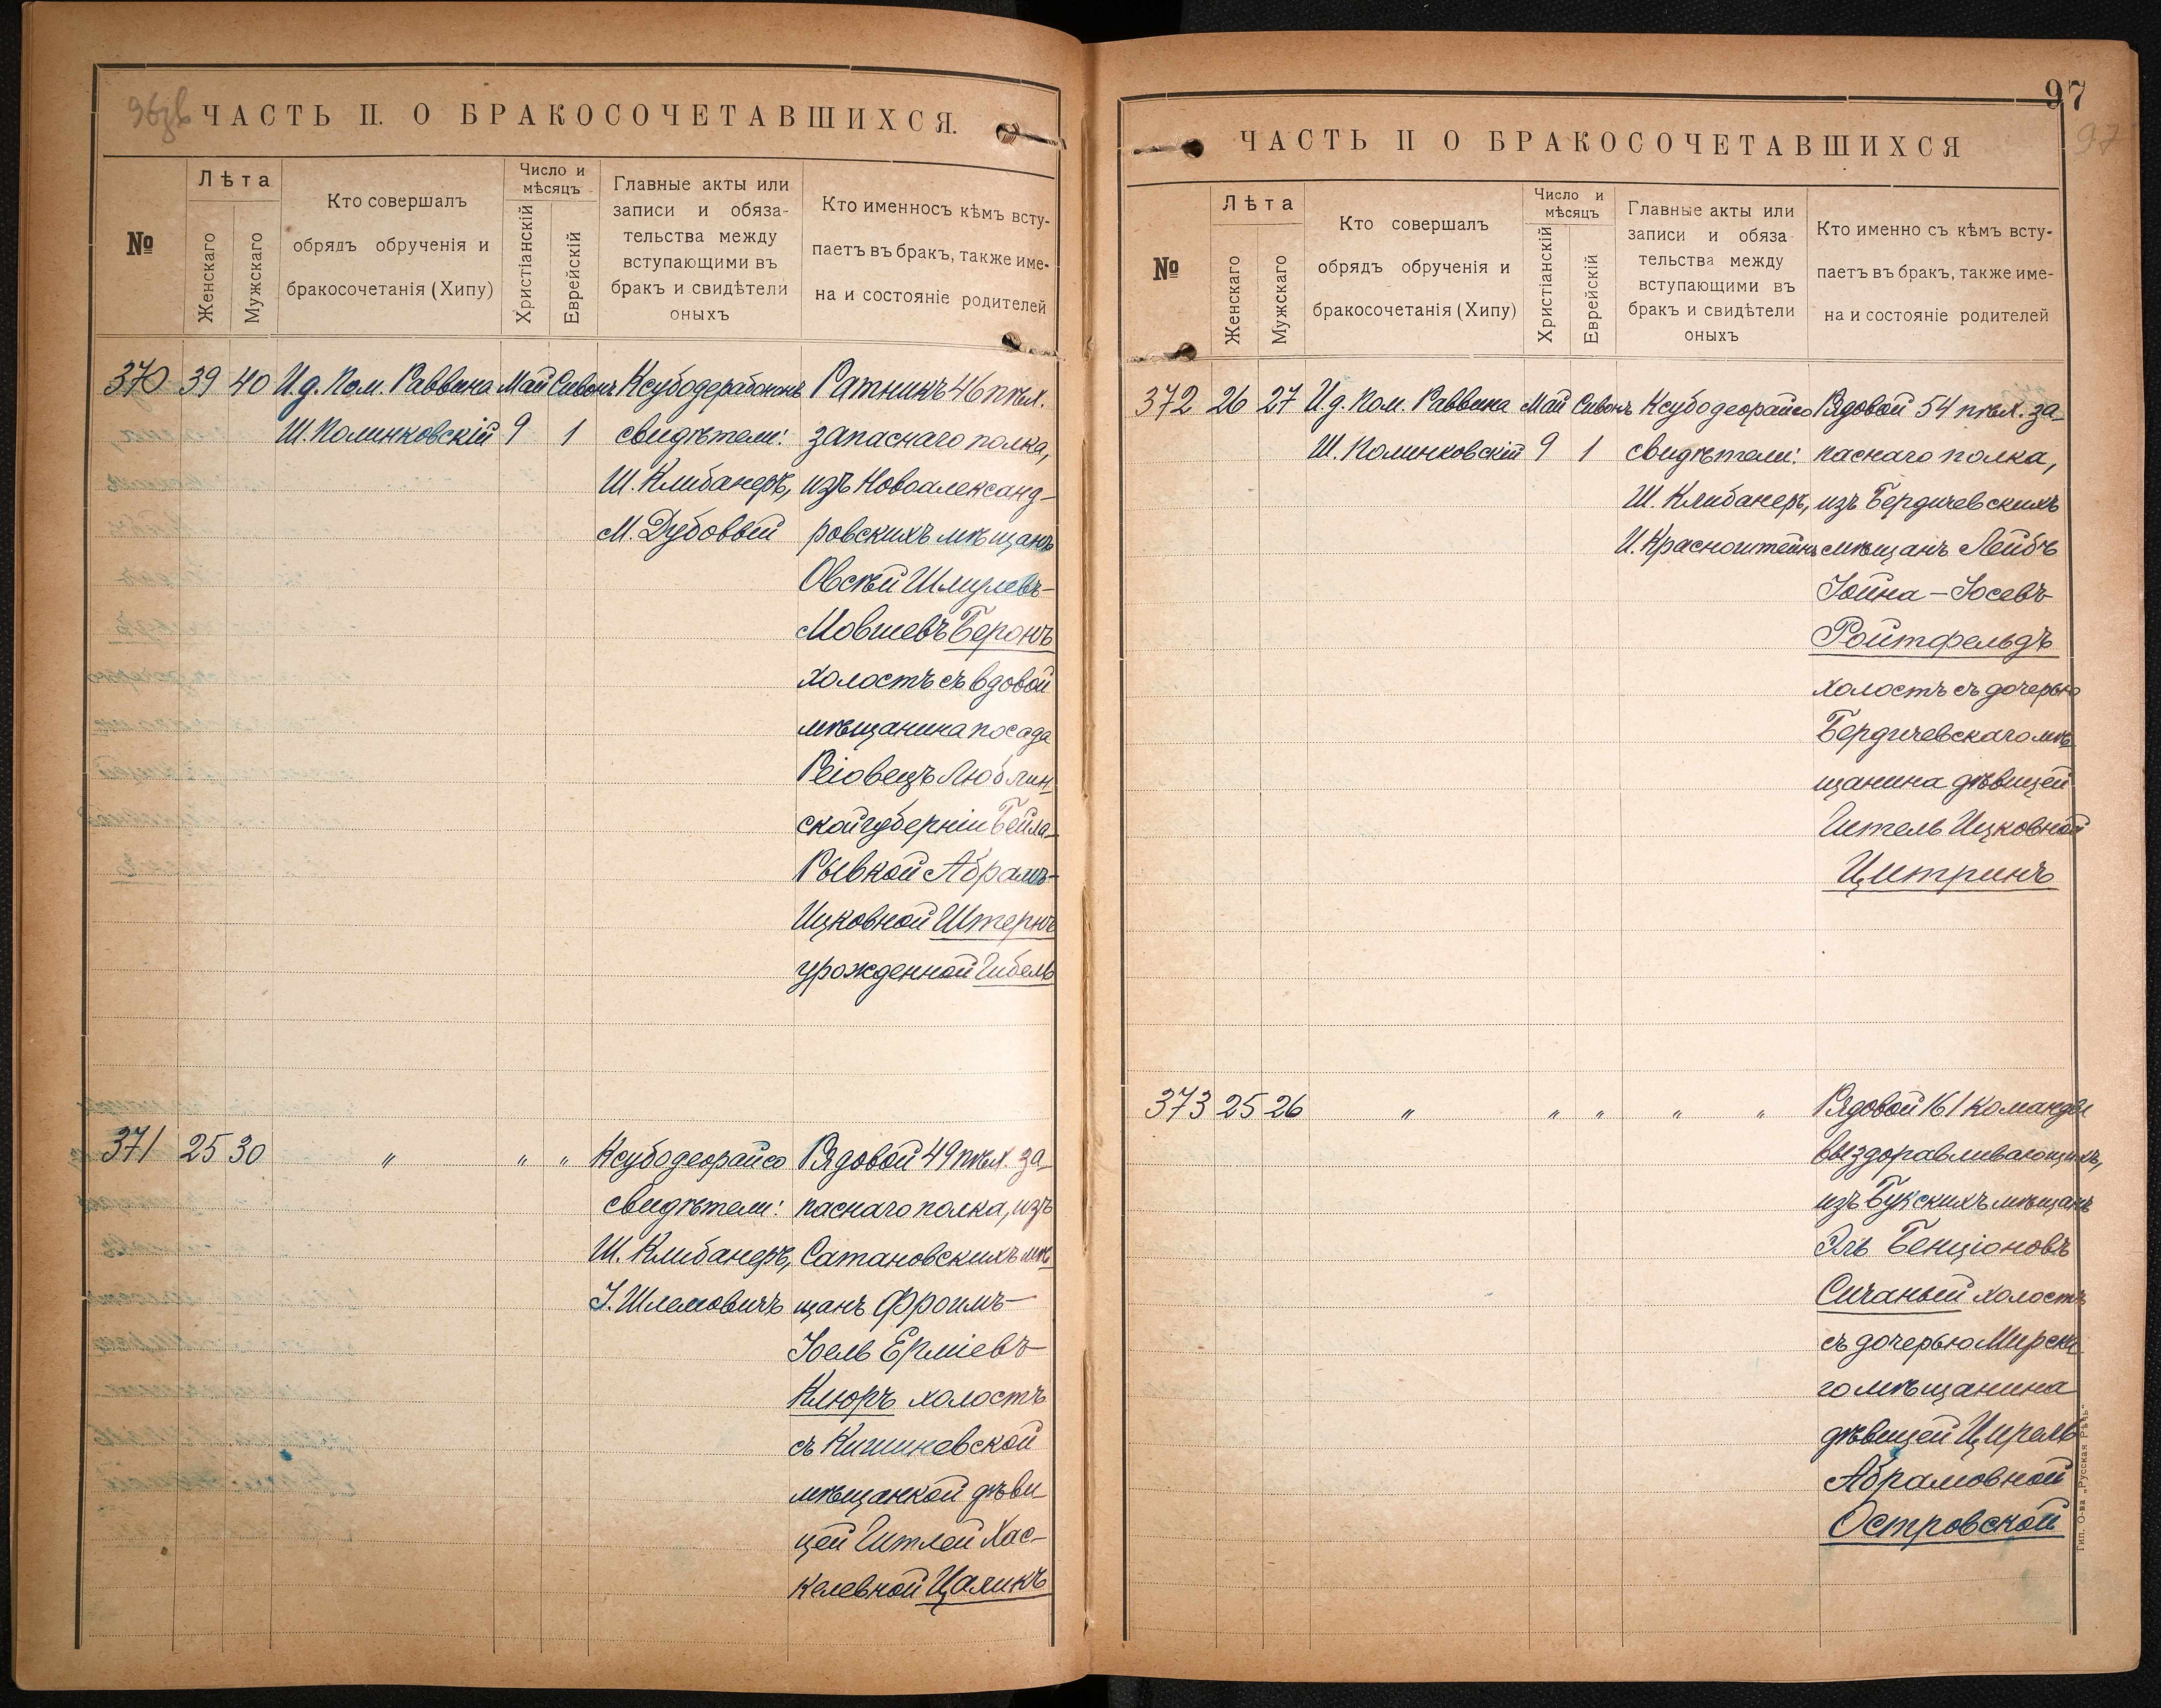 96об
ЧАСТЬ II. О БРАКОСОЧЕТАВШИХСЯ.
№
Лѣта
Женскаго
Мужскаго
Кто совершалъ
обрядъ обрученія и
бракосочетанія (Хипу)
Число и
мѣсяцъ
Христіанскій
Еврейскій
Главные акты или
записи и обяза-
тельства между
вступающими въ
бракъ и свидѣтели
оныхъ
Кто именносъ кѣмъ всту-
паетъ въ бракъ, также име-
на и состояніе родителей
370 39 40 И.д. Пом. Раввина Май Сивонъ Ксубодерабононъ Ратникъ 46 пѣх.
Ш. Полинковскій 9 1 свидѣтели: запаснаго полка,
Ш. Клибанеръ, изъ Новоалександ-
М. Дубовый ровскихъ мѣщанъ
Овсѣй Шмулевъ-
Мовшевъ Беронъ
холостъ съ вдовой
мѣщанина посада
Реіовецъ Люблин-
ской губерніи Бейла-
Рывкой Абрамъ-
Ицковной Штернъ
урожденной Гибель
371 25 30 " " " Ксубодеорайсо Рядовой 49 пѣх. за-
свидѣтели: паснаго полка, изъ
Ш. Клибанеръ, Сатановскихъ мѣ-
І. Шлемовичъ щанъ Фроимъ-
Іоель Ерміевъ
Клюръ холостъ
съ Кишиневской
мѣщанкой дѣви-
цей Гитлей Хас-
келевной Цаликъ
97
97
ЧАСТЬ II О БРАКОСОЧЕТАВШИХСЯ
№
Лѣта
Женскаго
Мужскаго
Кто совершалъ
обрядъ обрученія и
бракосочетанія (Хипу)
Число и
мѣсяцъ
Христіанскій
Еврейскій
Главные акты или
записи и обяза
тельства между
вступающими въ
бракъ и свидѣтели
оныхъ
Кто именно съ кѣмъ всту-
паетъ въ бракъ, также име-
на и состояніе родителей
372 26 27 И.д. Пом. Раввина Май Сивонъ Ксубодеорайсо Рядовой 54 пѣх. за-
Ш. Полинковскій 9 1 свидѣтели: паснаго полка,
Ш. Клибанеръ, изъ Бердичевскихъ
И. Красноштейнъ мѣщанъ Лейбъ
Іойна-Іосевъ
Ройтфельдъ
холостъ съ дочерью
Бердичевскаго мѣ
щанина дѣвицей
Гитель Ицковной
Цитринъ
373 25 26 " " " " " Рядовой 161 команды
выздоравливающихъ,
изъ Букскихъ мѣщанъ
Эль Бенціоновъ
Сичаный холостъ
съ дочерью Мирска
го мѣщанина
дѣвицей Цирель
Абрамовной
Островской
Тип. О-ва „Русская Рѣчь“